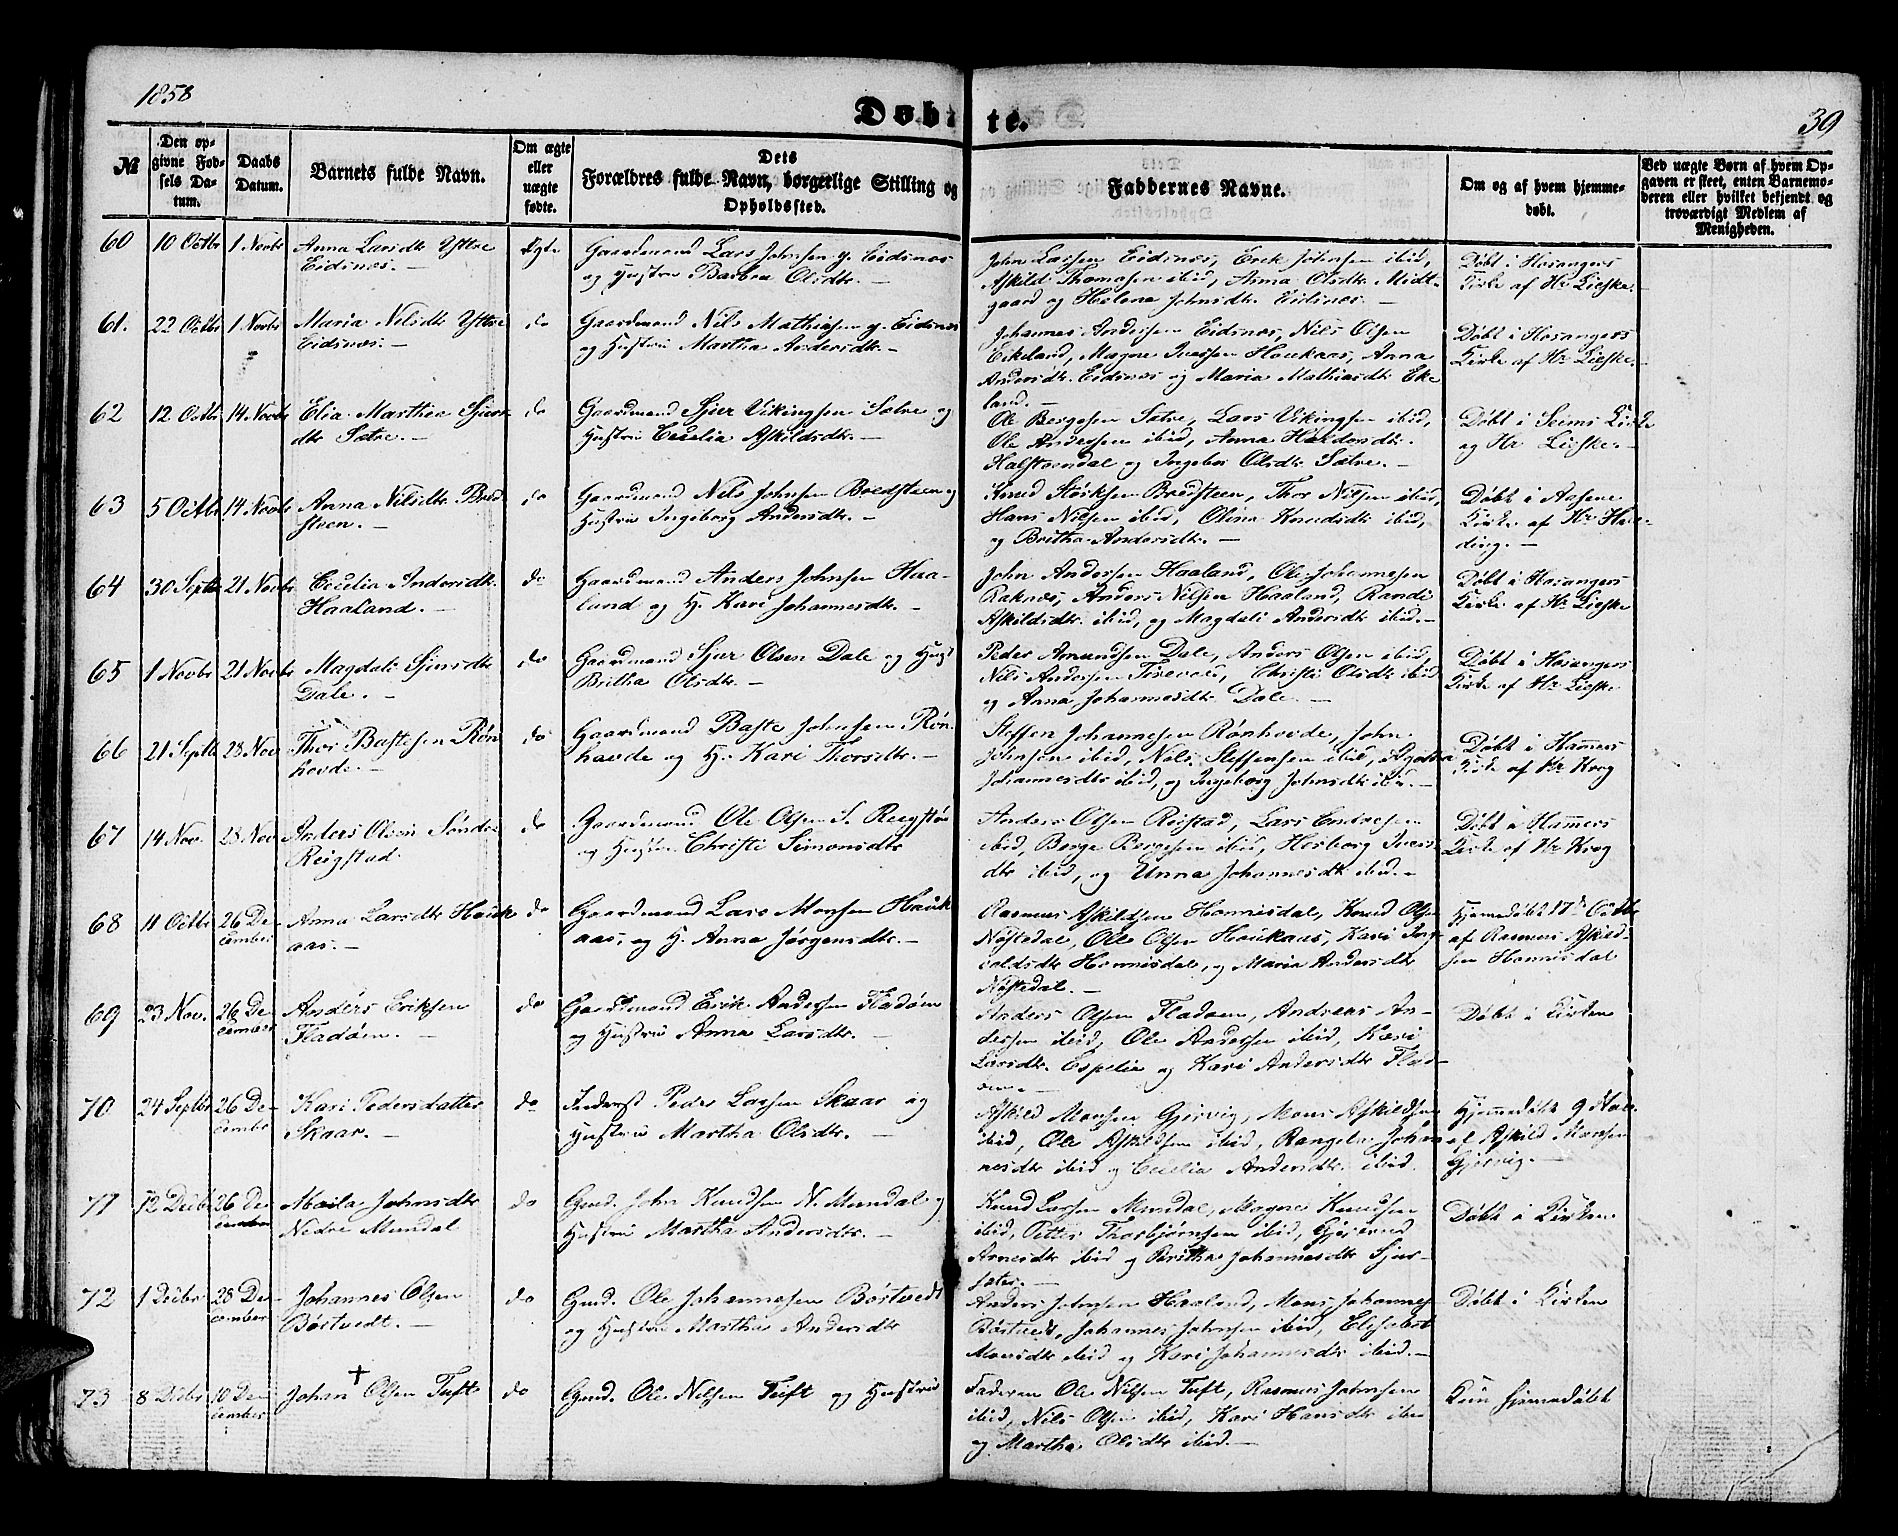 1858
Døbte.
39
№
Den opgivne Fødsels Datum.
Daabs Datum.
Barnets fulde Navn.
Om ægte eller uægte fødte.
Dets Forældres fulde Navn, borgerlige Stilling og Opholdssted.
Faddernes Navne.
Om og af hvem hjemmedøbt.
Ved uægte Børn af hvem Opgaven er skeet, enten Barnemoderen eller hvilket bekjendt og troværdigt Medlem af Menigheden.
60 10 Octbr 1 Novbr Anna Larsdtr Yttre
Eidsnes. —
Ægte
Gaardmand Lars Johnsen y. Eidsnes
og Hustru Barbra Olsdtr. —
John Larsen Eidsnes, Erik Johnsen ibid,
Askild Thomasen ibid, Anna Olsdtr. Midt-
gaard og Helena Johnsdtr. Eidsnes. —
Døbt i Hosangers
Kirke af Hr Lieske. —
61. 22 Octbr 1 Novbr Maria Nilsdtr Yttre
Eidsnes. —
do
Gaardmand Nils Mathiasen y. Eidsnes
og Hustru Martha Andersdtr. —
Johannes Andersen Eidsnes, Nils Olsen
Eikeland, Magne Iversen Houkaas, Anna
Andersdtr. Eidsnes og Maria Mathiasdtr Eke
land. —
Døbt i Hosangers
Kirke af Hr Lieske.
62 12 Octbr 14 Novbr Elia Marthea Sjurs
dtr Sætre. —
do
Gaardmand Sjur Vikingsen Sætre og
Hustru Cecelia Askildsdtr. —
Ole Bergesen Sætre, Lars Vikingsen ibid,
Ole Andersen ibid, Anna Haldorsdtr.
og Ingebor Olsdtr. Sætre. —
Døbt i Seims Kirke
og Hr Lieske. —
63 5 Octbr 14 Novbr Anna Nilsdtr Bred
steen. —
do
Gaardmand Nils Johnsen Bredsteen og
Hustru Ingeborg Andersdtr. —
Knud Størksen Bredsteen, Thor Nilsen ibid,
Hans Nilsen ibid, Olina Knudsdtr ibid,
og Britha Andersdtr. —
Døbt i Aasene
Kirke af Hr Har-
ding. —
64 30 Septbr 21 Novbr Cecelia Andersdtr.
Haaland. —
do
Gaardmand Anders Johnsen Haa-
land og H. Kari Johannesdtr. —
John Andersen Haaland, Ole Johannesen
Raknes, Anders Nilsen Haaland, Randi
Askildsdtr. ibid, og Magdali Andersdtr ibid. —
Døbt i Hosangers
Kirke af Hr Lieske
65 1 Novbr 21 Novbr Magdali Sjursdtr
Dale. —
do
Gaardmand Sjur Olsen Dale og Hust
Britha Olsdtr. —
Peder Amundsen Dale, Anders Olsen ibid,
Nils Andersen Christi Olsdtr ibid
og Anna Johannesdtr Dale. —
Døbt i Hosangers
Kirke af Hr Lieske
66 21 Septb 28 Nov Thor Bastesen Røn
hovde. —
do
Gaardmand Baste Johnsen Røn
havde og H. Kari Thorsdtr. —
Steffen Johannesen Rønhovde, John
Johnsen ibid, Nils Steffensen ibid, Agatha
Johannesdtr ibid, og Ingeborg Johnsdtr ibid. —
Døbt i Hammers
Kirke af Hr Krog
67 14 Nov. 28 Nov Anders Olsen Søndre
Reigstad.
do
Gaardmand Ole Olsen S. Reigstad
og Hustru Christi Simonsdtr
Anders Olsen Reistad, Lars Endresen
ibid, Berge Bergesen ibid, Herborg Ivers-
dtr ibid, og Unna Johannesdtr ibid. —
Døbt i Hammers
Kirke af Hr Krog
68 11 Octbr 26 De-
cember
Anna Larsdtr Houk
aas. —
do
Gaardmand Lars Monsen Houk
aas, og H. Anna Jørgensdtr. —
Rasmus Askildsen Honnisdal, Knud Olsen
Nøstedal, Ole Olsen Houkaas, Kari Ing-
valdsdtr Honnisdal, og Maria Andersdtr
Nøstedal. —
Hjemmedøbt 17de Octbr
af Rasmus Askild-
sen Honnisdal
69 23 Nov. 26 De-
cember
Anders Eriksen
Fladøen. —
do
Gaardmand Erik Andersen Fladøen
og Hustru Anna Larsdtr.
Anders Olsen Fladøen, Andreas An-
dersen ibid, Ole Andersen ibid, Kari
Larsdtr. Espelia og Kari Andersdtr Flad-
øen. —
Døbt i Kirken
70 24 Septbr 26 De-
cembr
Kari Pedersdatter
Skaar. —
do
Inderst Peder Larsen Skaar og
Hustru Martha Olsdtr. —
Askild Monsen Gjervig, Mons Askildsen
ibid, Ole Askildsen ibid, Rangela Johan
nesdtr ibid og Cecelia Andersdtr. ibid.
Hjemmedøbt 9 Nov.
af Askild Monsen
Gjervig. —
71 12 Decbr 26 De
cember
Maila Johnsdtr
Nedre Mundal
do
Gmd. John Knudsen N. Mundal og
Hustru Martha Andersdtr. —
Knud Larsen Mundal, Magne Knudsen
ibid, Petter Thorbjørnsen ibid, Gjertrud
Arnesdtr ibid og Britha Johannesdtr Sjur-
sæter. —
Døbt i Kirken
72 1 Decbr 28 De-
cember
Johannes Olsen
Børtvedt. —
do
Gmd. Ole Johannesen Børtvedt
og Hustru Martha Andersdtr
Anders Johnsen Haaland, Mons Johannes
Børtvedt, Johannes Johnsen ibid, Elisabet
Monsdtr ibid og Kari Johannesdtr ibid. —
Døbt i Kirken
73 8 Decbr 10 De-
cember
Johan † Olsen Tuft
do
Gmd. Ole Nilsen Tuft og Hustru
Faderen Ole Nilsen Tuft, Rasmus Johnsen
ibid, Nils Olsen ibid, Kari Hansdtr ibid
og Martha Olsdtr ibid. —
Kun hjemmedøbt